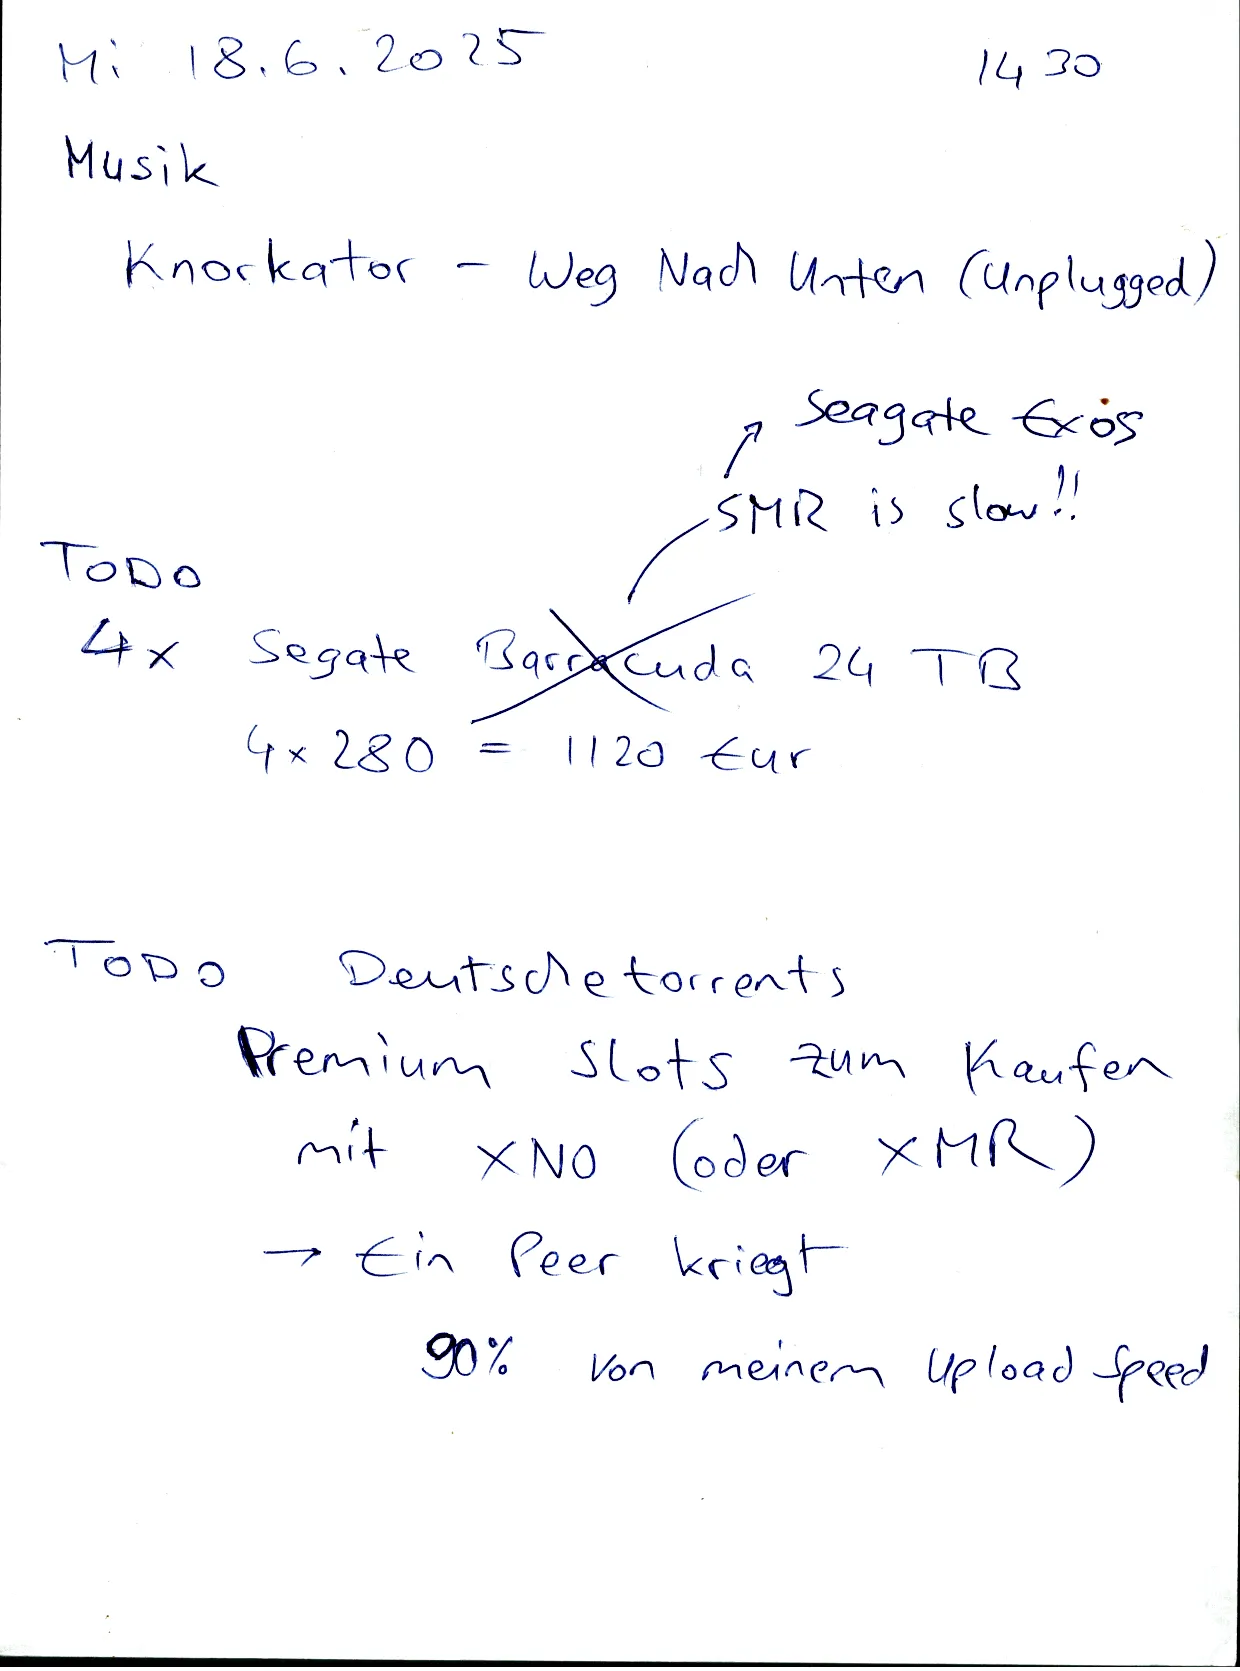 Mi 18.6.2025 14 30
Musik
Knorkator - Weg Nach Unten (Unplugged)
↗ Seagate Exos
SMR is slow!!
TODO
4x Segate Barracuda 24 TB
4x280 = 1120 Eur
TODO Deutschetorrents
Premium Slots zum Kaufen
mit XNO (oder XMR)
→ Ein Peer kriegt
90% von meinem Upload Speed